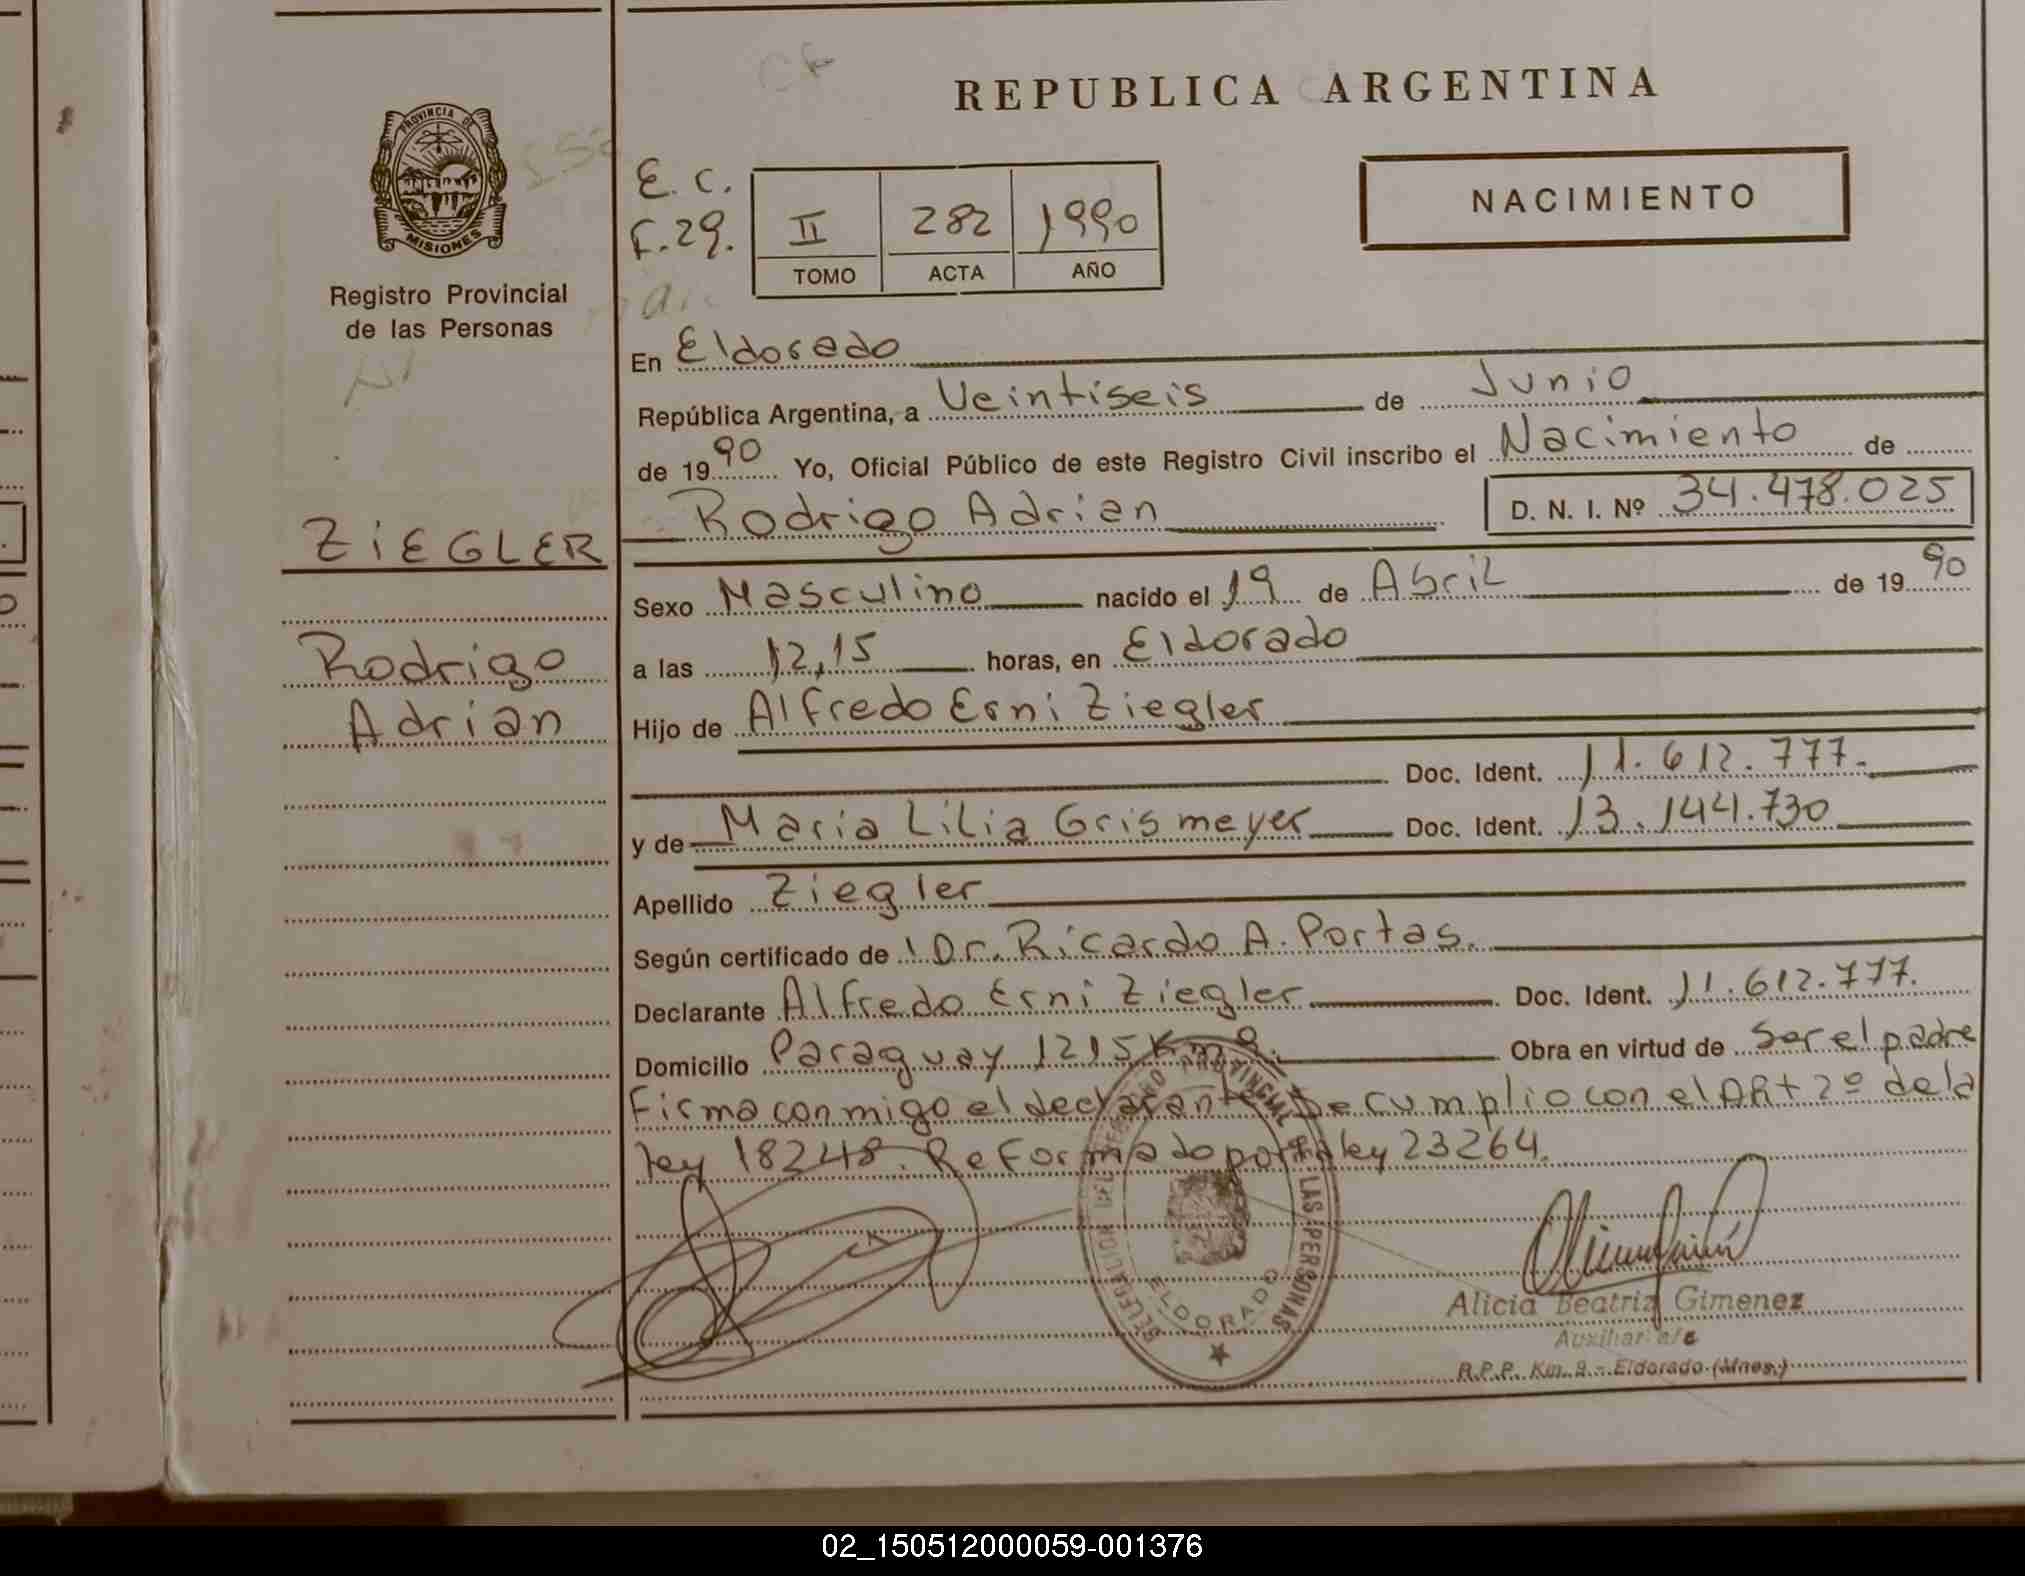 REPUBLICA ARGENTINA
PROVINCIA DE
MISIONES
Registro Provincial
de las Personas
E. C.
F. 29.
II 282 1990
TOMO ACTA AÑO
NACIMIENTO
En Eldorado
República Argentina, a Veintiseis de Junio
de 1990 Yo, Oficial Público de este Registro Civil inscribo el Nacimiento de
Rodrigo Adrian D. N. I. Nº 34.478.025
ZiEGLER
Rodrigo
Adrian
Sexo Masculino nacido el 19 de Abril de 1990
a las 12,15 horas, en Eldorado
Hijo de Alfredo Erni Ziegler
Doc. Ident. 11.612.777.
y de Maria Lilia Grismeyer Doc. Ident. 13.144.730
Apellido Ziegler
Según certificado de Dr. Ricardo A. Portas.
Declarante Alfredo Erni Ziegler Doc. Ident. 11.612.777.
Domicilio Paraguay 1215 Km 9. Obra en virtud de Ser el padre
Firma conmigo el declarante Se cumplio con el ARt 2º de la
ley 18248. Reformado por la ley 23264.
DELEGACION DEL REGISTRO PROVINCIAL DE LAS PERSONAS
ELDORADO
Alicia Beatriz Gimenez
Auxiliar a/c
R.P.P. Km. 9 - Eldorado (Mnes.)
02_150512000059-001376